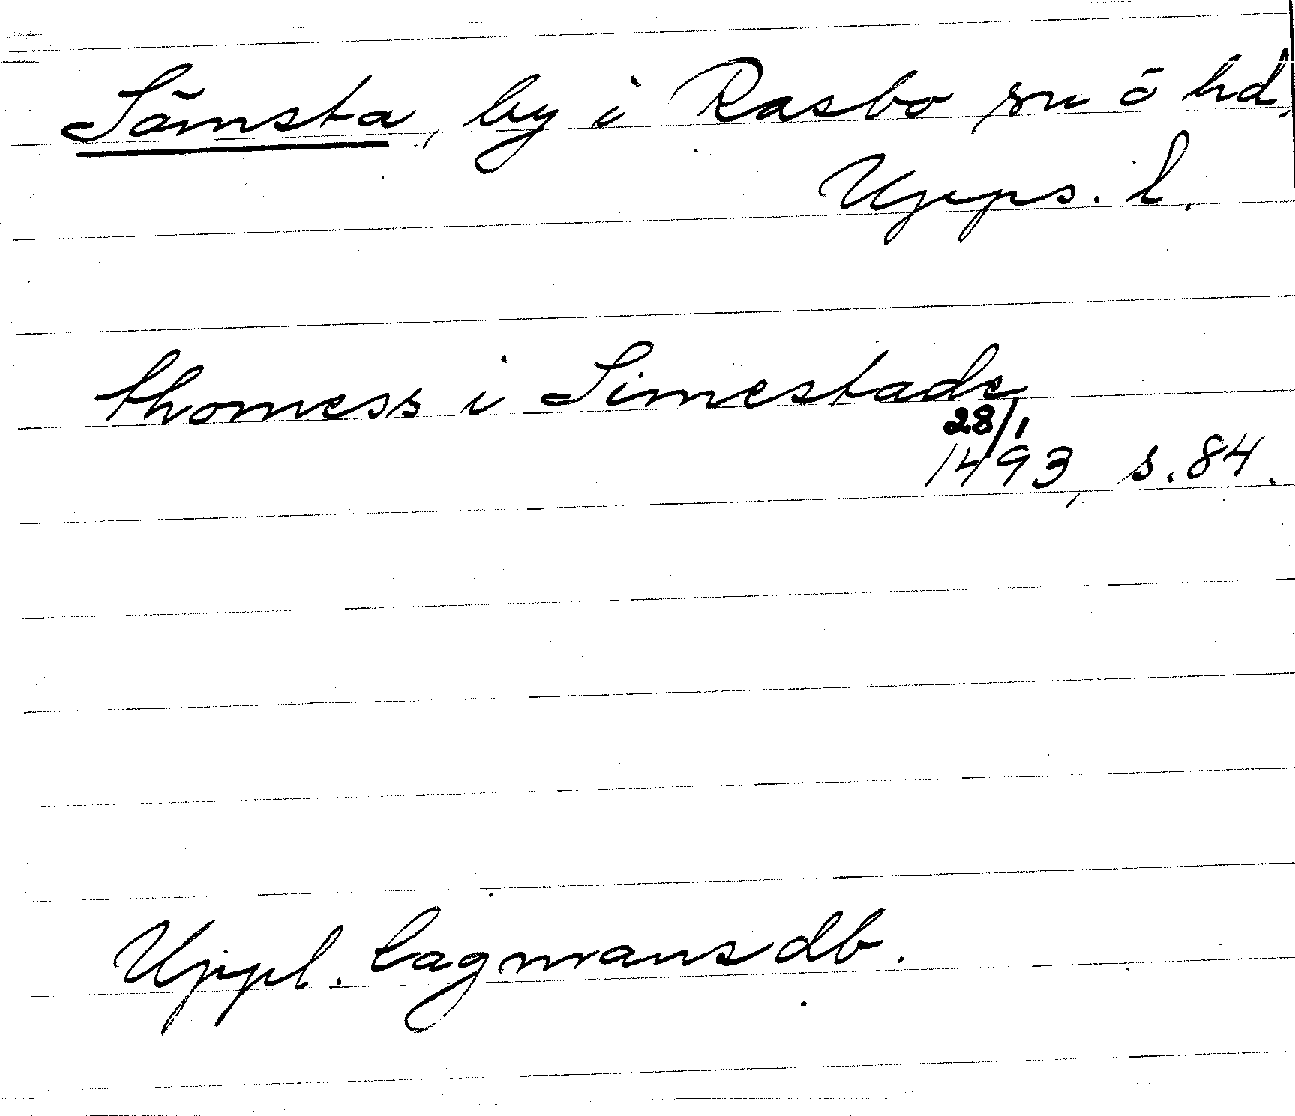 Sämsta, by i Rasbo sn ö hd,
Upps. l.
thomess i Simestade
28/1
1493, s. 84.
Uppl. Lagmansdb.